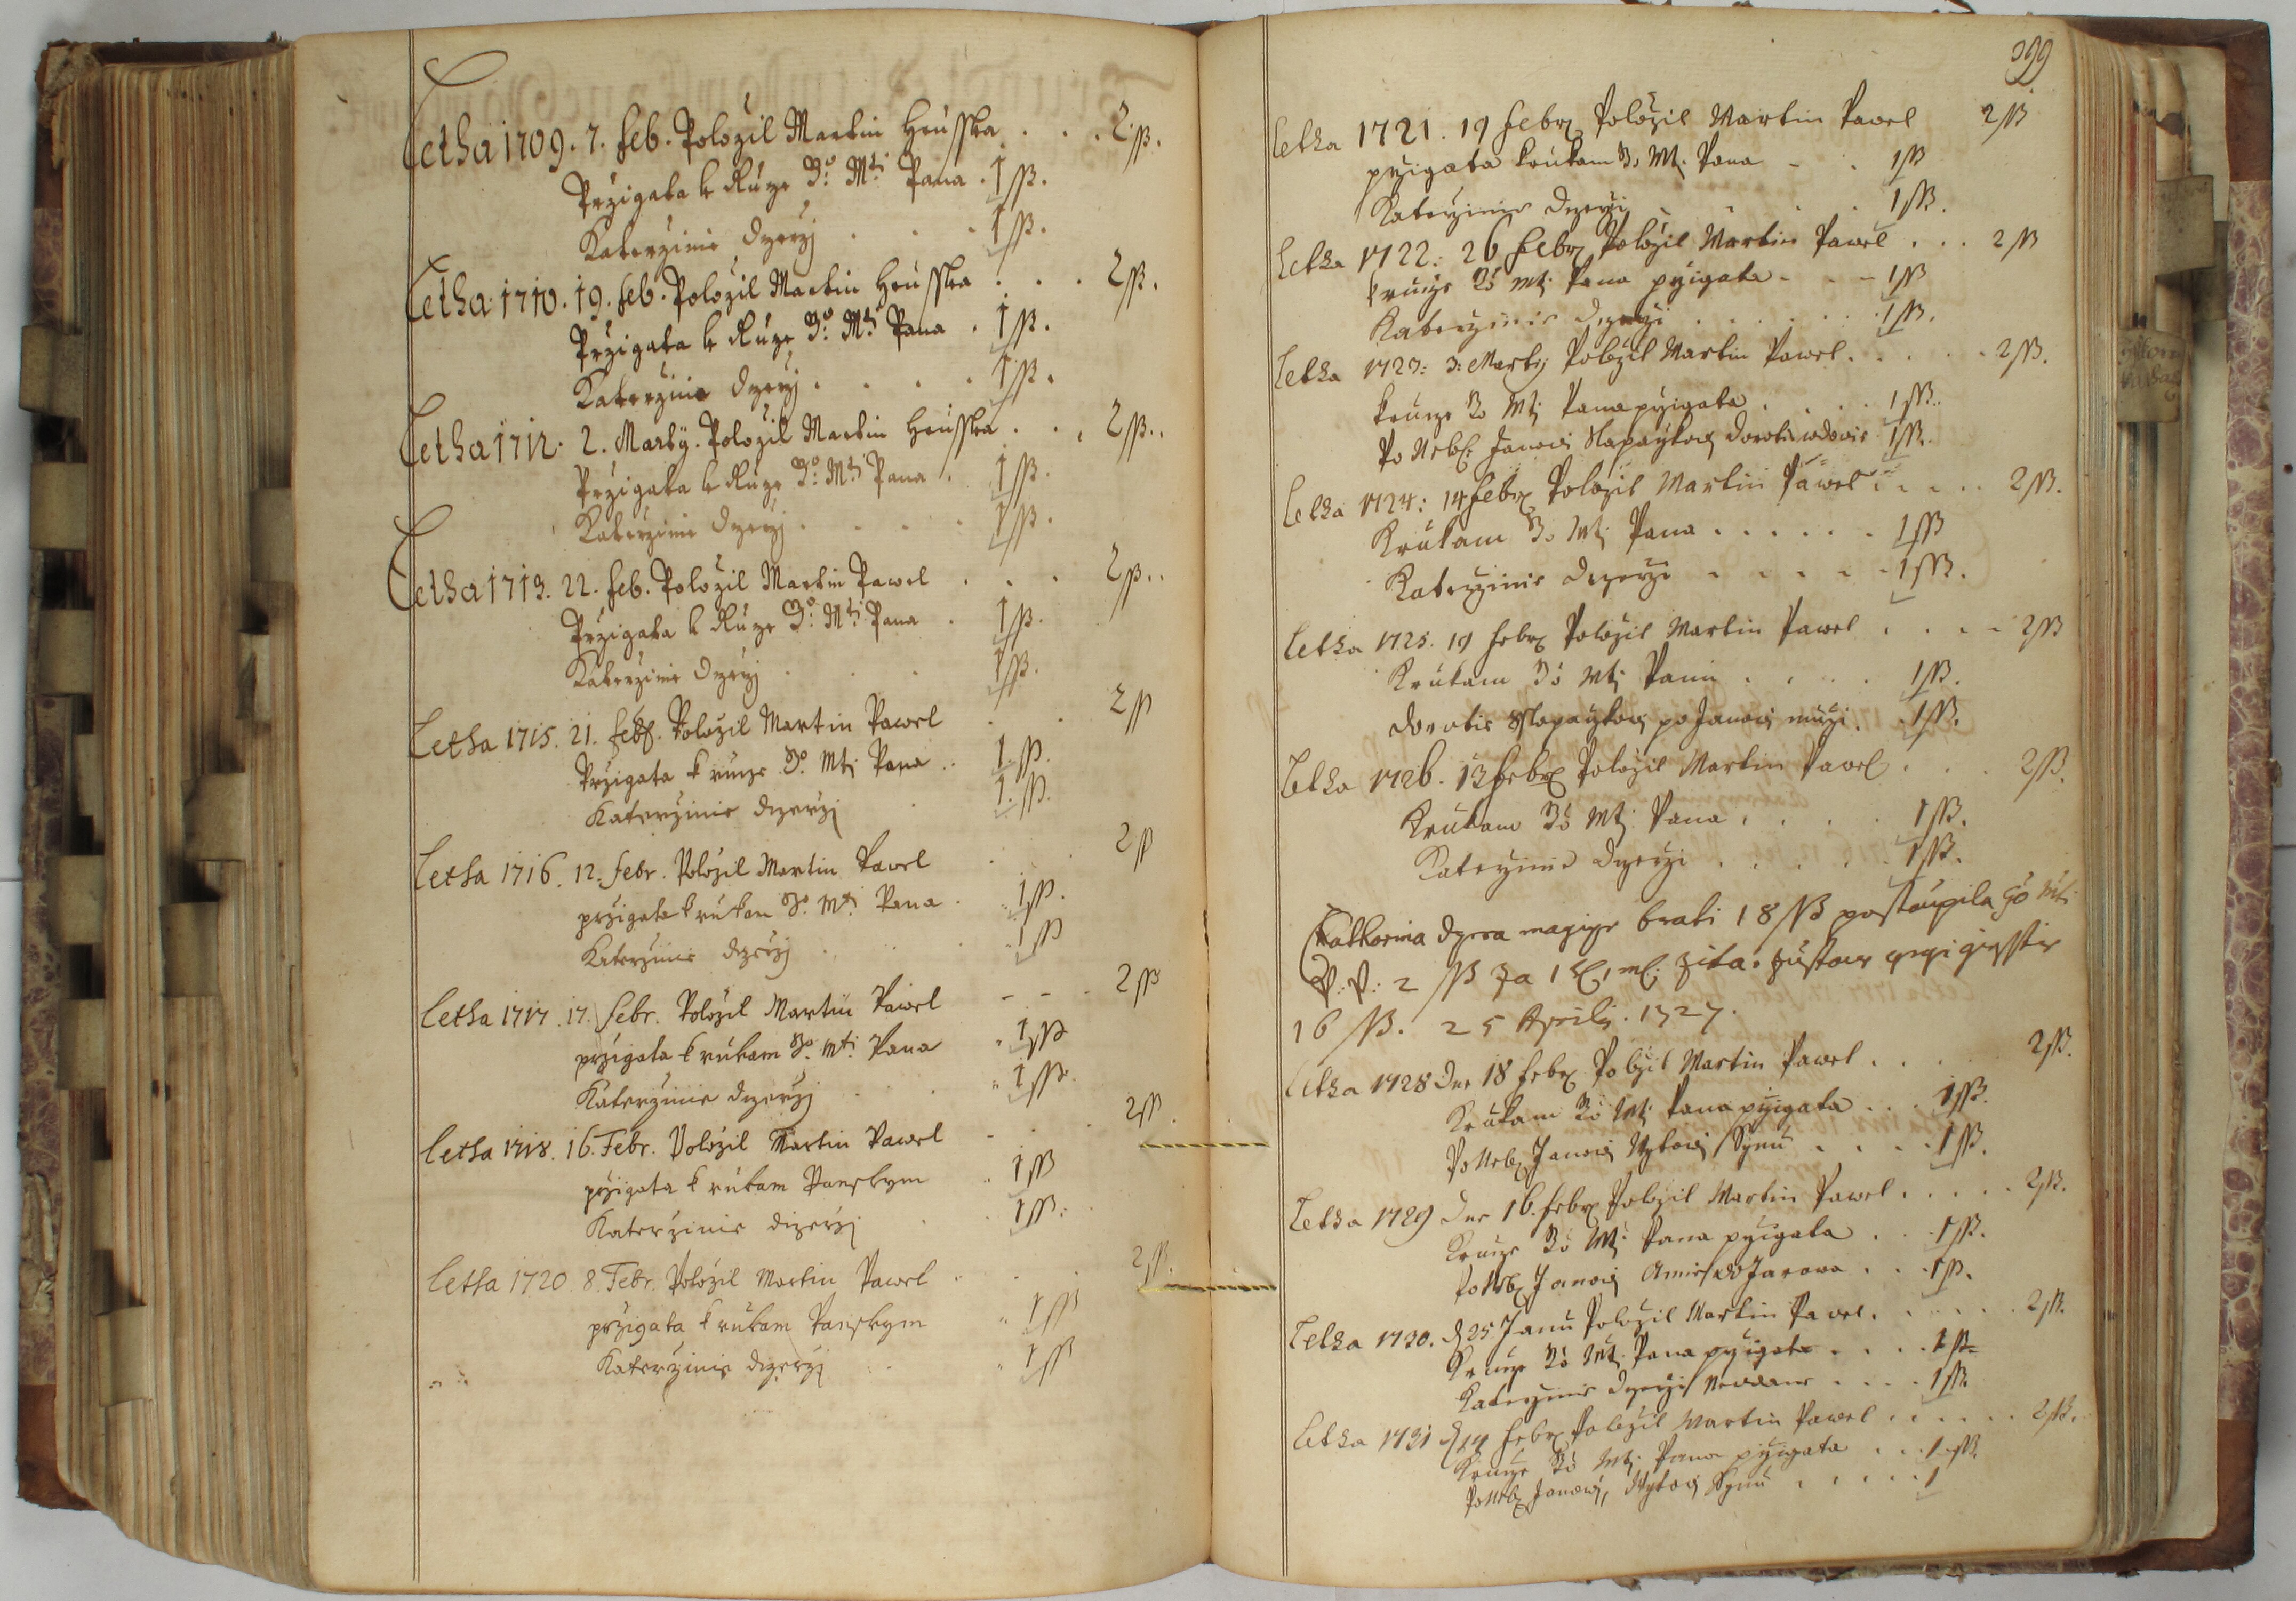 Letha 1709. 7. feb. Položil Martin Hrusska . . . 2 ß.
Przigata k Ruze Jo. Mti Pana . 1 ß.
Katerzinie Dczerzj . . . 1 ß.
Letha 1710. 19. feb. Položil Martin Hrusska . . . 2 ß.
Przigata k Ruze Jo. Mti Pana . 1 ß.
Katerzinie Dczerzj . . . . 1 ß.
Letha 1712. 2. Marty. Položil Martin Hrusska . . . 2 ß.
Przigata k Ruze Jo. Mti Pana . 1 ß.
Katerzinie Dczerzj . . . . 1 ß.
Letha 1713. 22. feb. Položil Martin Pawel . . . 2 ß.
Przigata k Ruze Jo. Mti Pana . 1 ß.
Katerzinie Dczerzj . . . 1 ß.
Letha 1715. 21. feb. Položil Martin Pawel . . 2 ß
Przigata k rucze Jo. Mti Pana . . 1 ß.
Katerzinie dczerzj . 1. ß.
Letha 1716. 12. febr. Položil Martin Pawel . . . 2 ß
przigata k rukam Jo. Mti Pana . . 1 ß.
Katerzinie dczerzj . . . 1 ß
Letha 1717. 17. febr. Položil Martin Pawel - - - 2 ß
przigata k rukam Jo. Mti Pana . 1 ß
Katerzinie dczerzj . . 1 ß.
Letha 1718. 16. Febr. Položil Martin Pawel - . . 2 ß.
przigata k rukam Panskym . 1 ß
Katerzinie dczerzj . . 1 ß.
Letha 1720. 8. Febr. Položil Martin Pawel . . . 2 ß.
przigata k rukam Panskym . 1 ß
Katerzinie dczerzj . . 1 ß
399
Letha 1721. 19 Febr. Položil Martin Pawel 2 ß
przigata krukam Jo Mti. Pana - . 1 ß
Katerzinie Dczerzi . . . 1 ß.
Letha 1722: 26 Febr. Položil Martin Pawel . . . 2 ß
krucze Jo Mti Pana przigata - - - 1 ß
Katerzinie Dczerzi . . . . . 1 ß.
Letha 1723: 3: Marty Položil Martin Pawel . . . . . 2 ß.
krucze Jo Mti Pana przigata . . . . 1 ß.
Po Neb: Janowi Dorotie wdowie 1 ß.
Letha 1724: 14 Febr. Položil Martin Pawel . . . . 2 ß.
Krukam Jo Mti Pana . . . . . . 1 ß
Katerzinie Dczerzi . . . . . 1 ß.
Letha 1725. 19 Febr. Položil Martin Pawel . . . - 2 ß
Krukam Jo Mti Pana . . . . 1 ß.
Dorotie po Janowi muzi . . 1 ß.
Letha 1726. 13 Febr. Položil Martin Pawel . . . 2 ß.
Krukam Jo Mti Pana . . . . 1 ß.
Katerzinie Dczerzi . . . . . 1 ß.
Katherina Dczera magicze brati 18 ß postaupila Jo Mti
P: P: 2 ß za 1 žita. zustaw gegi giesstie
16 ß. 25 Aprilis. 1727.
Letha 1728 Dne 18 Febr. Položil Martin Pawel . . . 2 ß.
Krukam Jo Mti Pana przigata . . . 1 ß.
Po Neb. Janowi Synu . . . . 1 ß.
Letha 1729 Dne 16. Febr. Položil Martin Pawel . . . . . 2 ß.
Krucze Jo Mti Pana przigata . . . 1 ß.
Po Neb. Janowi . . . 1 ß.
Letha 1730. d 25 Janu Položil Martin Pawel . . . . . . 2 ß.
Krucze Jo Mti Pana przigata . . . . 1 ß.
Katerzinie Dczerzi . . . . 1 ß.
Letha 1731 d 14 Febr. Položil Martin Pawel . . . . . . 2 ß.
Krucze Jo Mti Pana przigata . . . 1 ß.
Po Neb. Janowi, Synu . . . . . 1